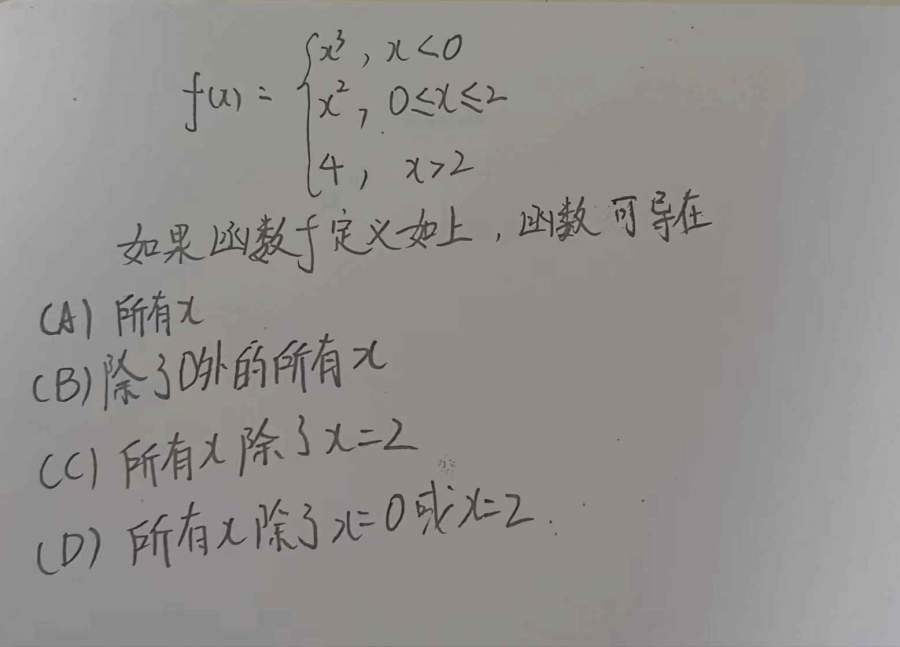 f(x) = { x³, x<0
x², 0≤x≤2
4, x>2
如果函数f定义如上，函数可导在
(A) 所有x
(B) 除了0外的所有x
(C) 所有x除了x=2
(D) 所有x除了x=0或x=2.